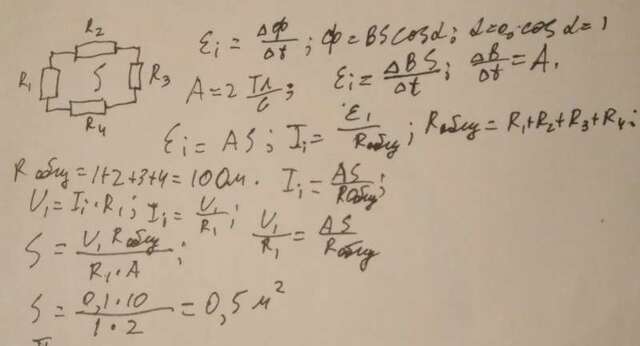 R₂
R₁
S
R₃
R₄
Ɛi = ΔΦ/Δt ; Φ = BS cosα ; α = 0, cosα = 1
A = 2 Тл/с ; Ɛi = ΔBS/Δt ; ΔB/Δt = A.
Ɛi = AS ; Ii = Ɛi/Rобщ ; Rобщ = R₁+R₂+R₃+R₄ ;
Rобщ = 1+2+3+4 = 10 Ом. Ii = AS/Rобщ ;
U₁ = Ii·R₁ ; Ii = U₁/R₁ ; U₁/R₁ = AS/Rобщ
S = U₁Rобщ/R₁·A ;
S = 0,1·10/1·2 = 0,5 м²